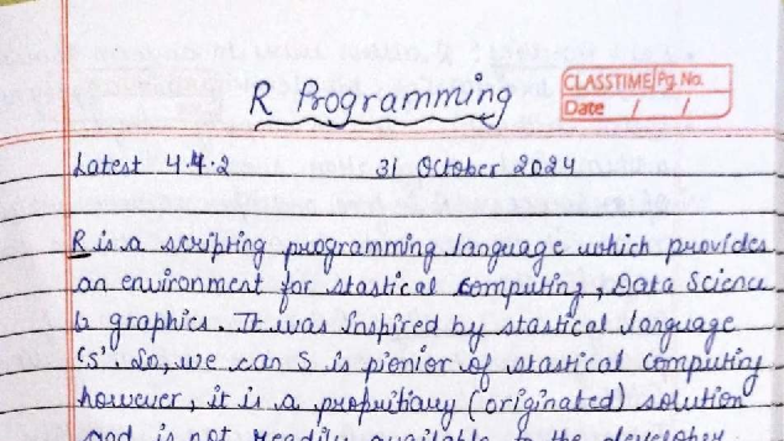 R Programming
CLASSTIME Pg. No.
Date / /
Latest 4.4.2 31 October 2024
R is a scripting programming language which provides
an environment for stastical computing, Data Science
& graphics. It was Inspired by stastical language
'S'. So, we can S is pionier of stastical computing
however, it is a propritiary (originated) solution
and is not readily available to the developer